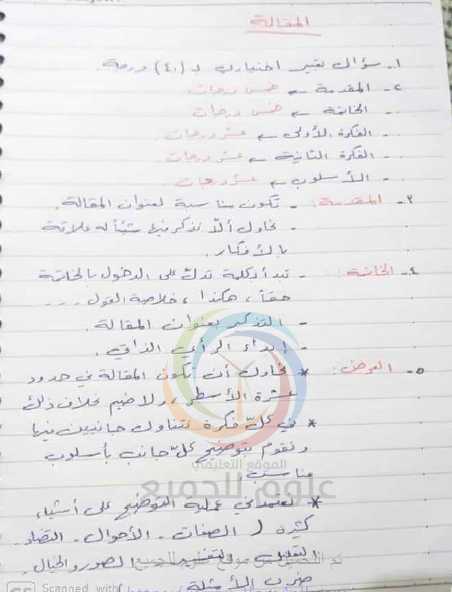 المقالة
١- سؤال غير اختياري لـ (٤٠) درجة
٢- المقدمة ← خمس درجات
- الخاتمة ← خمس درجات
- الفكرة الأولى ← عشر درجات
- الفكرة الثانية ← عشر درجات
- الأسلوب ← عشر درجات
٣- المقدمة: - تكون مناسبة لعنوان المقالة.
- نحاول ألّا نذكر فيها شيئاً له علاقة
بالأفكار.
٤- الخاتمة: - نبدأ بكلمة تدلّ على الدخول بالخاتمة
حقاً، هكذا، خلاصة القول ...
- التذكير بعنوان المقالة.
- إبداء الرأي الذاتي.
٥- العرض: * نحاول أن تكون المقالة في حدود
عشرة الأسطر، ولا ضيم خلاف ذلك
* في كلّ فكرة نتناول جانبين فيها
ونقوم بتوضيح كلّ جانب بأسلوب
مناسب
* تعتمد عملية التوضيح على أشياء
كثيرة ( الصفات - الأحوال - التضاد -
التعليل - الصور والخيال -
ضرب الأمثلة
الموقع التعليمي
علوم للجميع
Scanned with